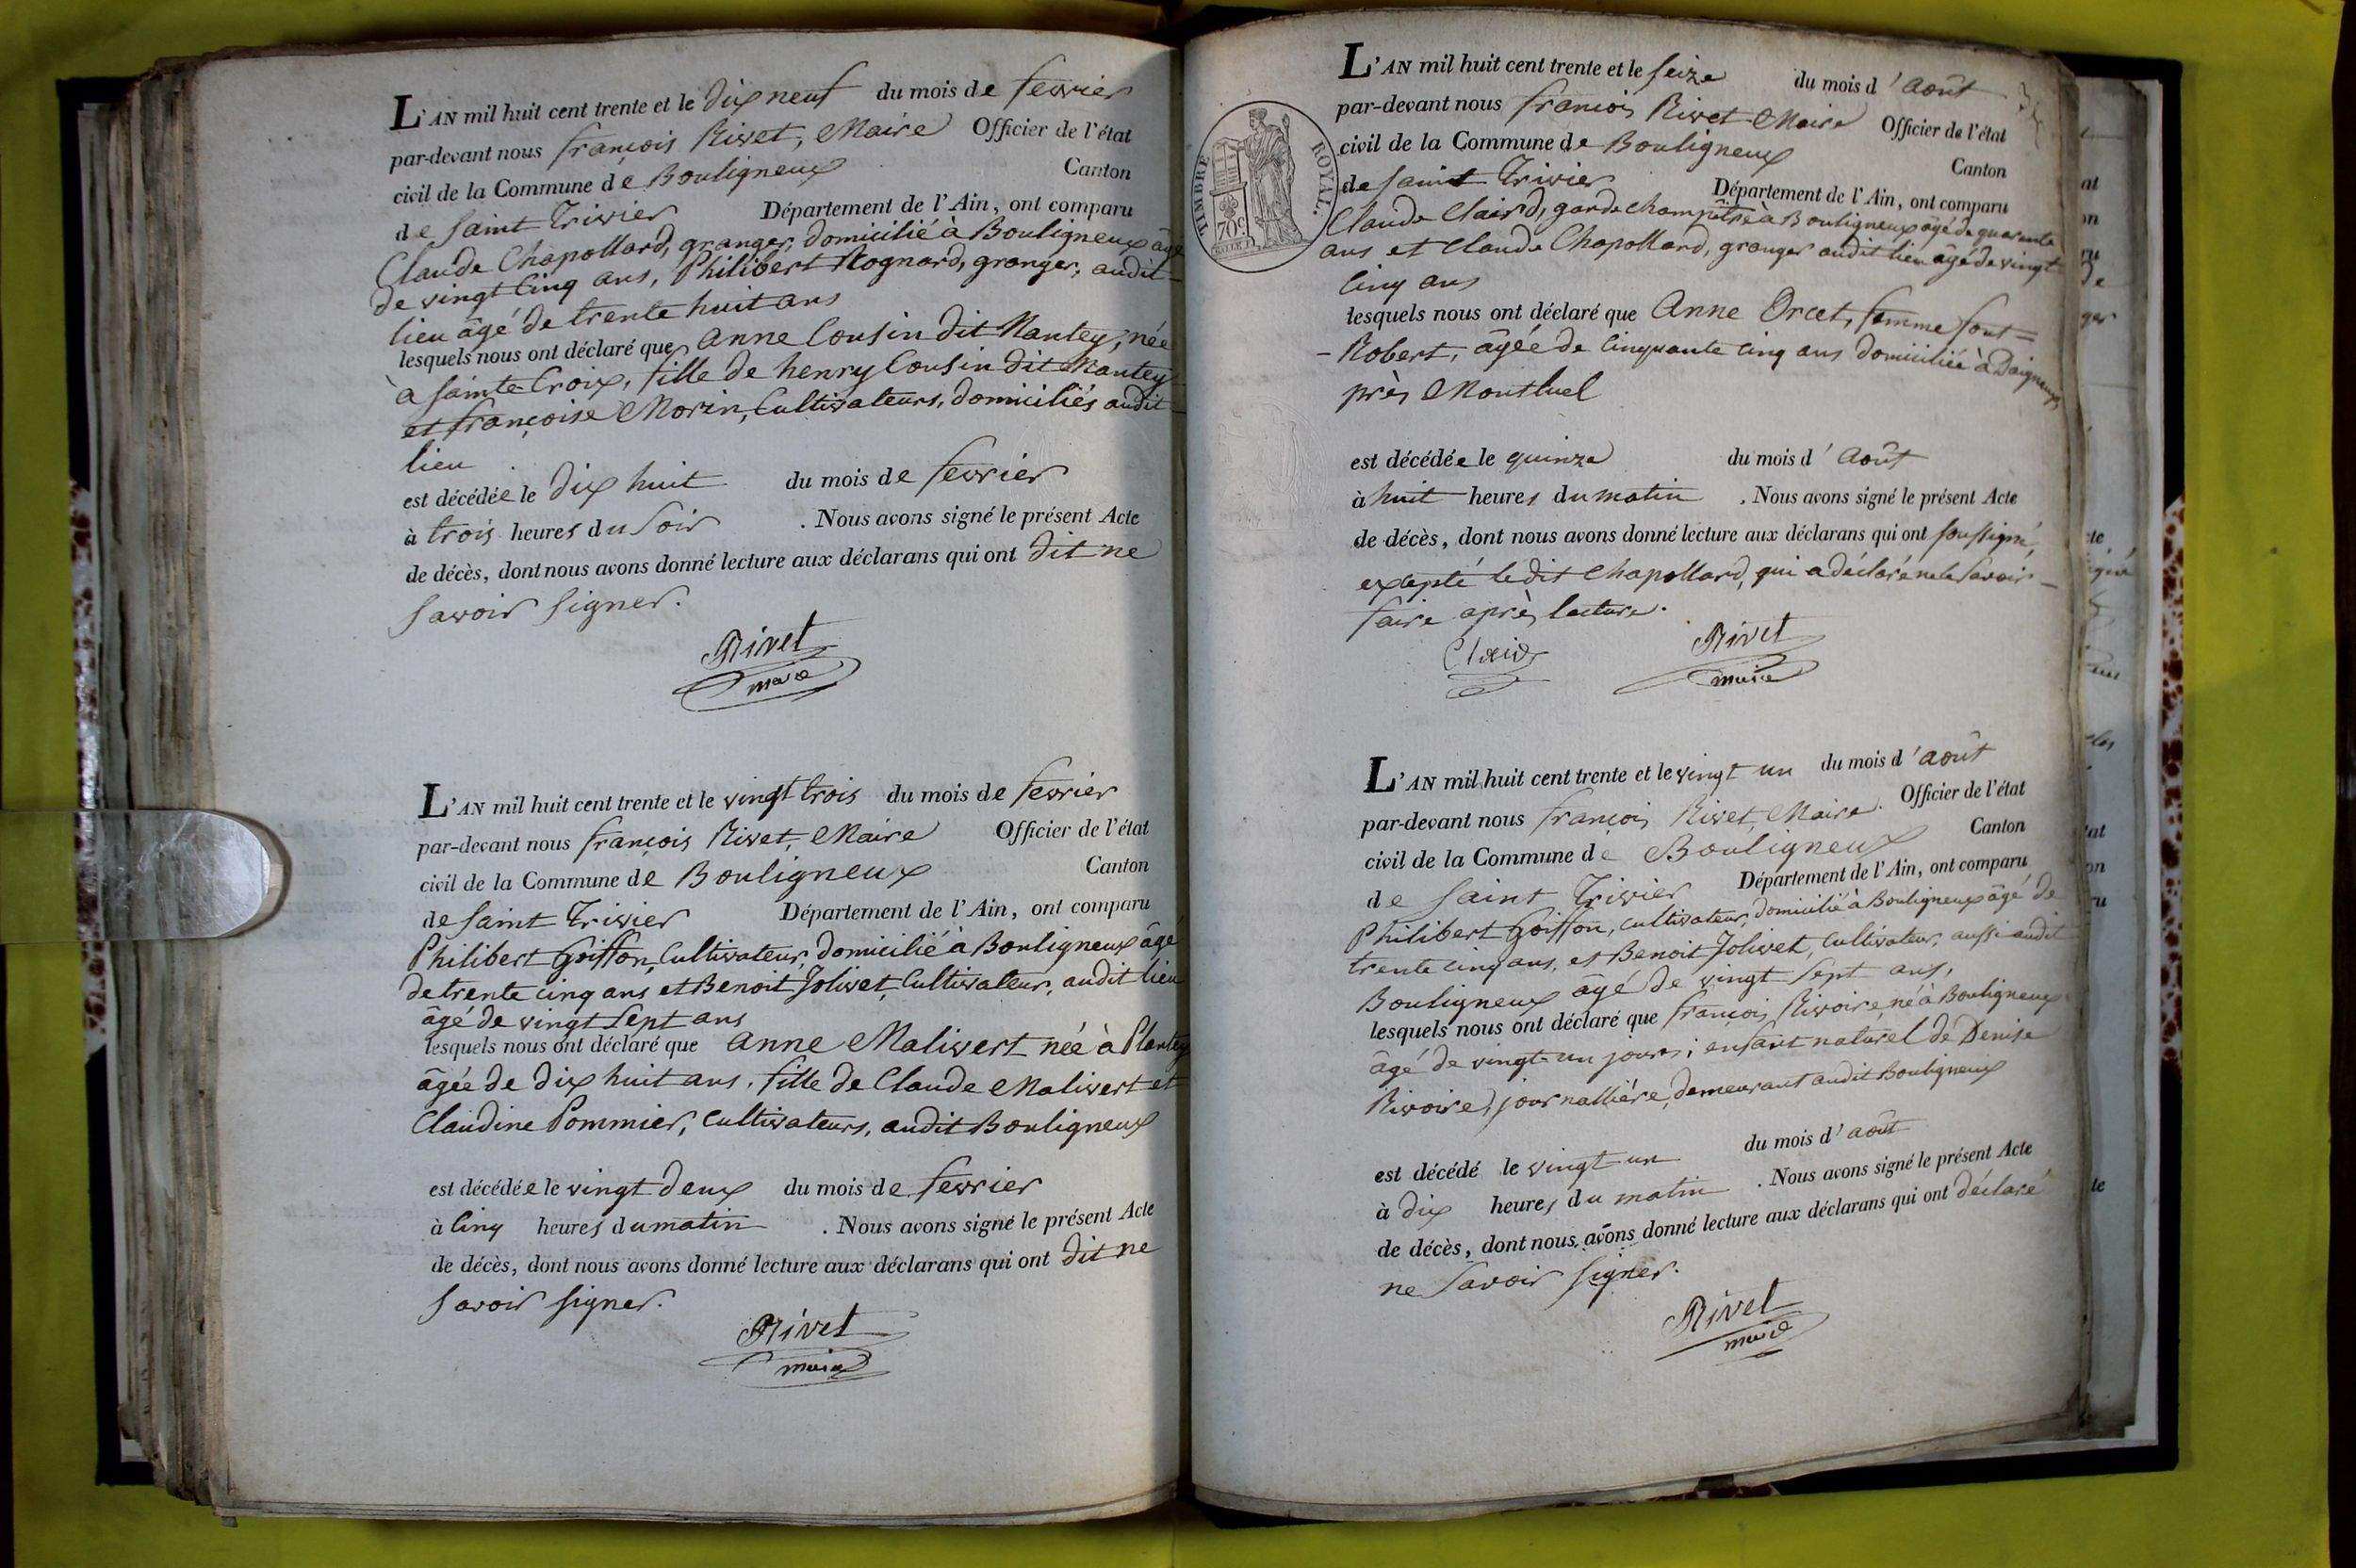 L'AN mil huit cent trente et le dix neuf du mois de fevrier
par-devant nous françois Rivet, Maire Officier de l'état
civil de la Commune de Bouligneux Canton
de Saint Trivier Département de l'Ain, ont comparu
Claude Chapollard, granger, domicilié à Bouligneux âgé
de vingt cinq ans, Philibert Rognard, granger, audit
lieu âgé de trente huit ans
lesquels nous ont déclaré que anne Cousin dit Nantey, née
à Sainte Croix, fille de henry Cousin dit Nantey
et françoise Morin, Cultivateurs, domiciliés audit
lieu
est décédée le dix huit du mois de fevrier
à trois heures du Soir . Nous avons signé le présent Acte
de décès, dont nous avons donné lecture aux déclarans qui ont dit ne
Savoir Signer.
Rivet
maire
L'AN mil huit cent trente et le vingt trois du mois de fevrier
par-devant nous françois Rivet, Maire Officier de l'état
civil de la Commune de Bouligneux Canton
de Saint Trivier Département de l'Ain, ont comparu
Philibert Goiffon, Cultivateur, domicilié à Bouligneux âgé
de trente cinq ans et Benoit Jolivet, Cultivateur, audit lieu
âgé de vingt Sept ans
lesquels nous ont déclaré que anne Malivert née à Plantey
âgée de dix huit ans, fille de Claude Malivert et
Claudine Pommier, Cultivateurs, audit Bouligneux
est décédée le vingt deux du mois de fevrier
à Cinq heures du matin . Nous avons signé le présent Acte
de décès, dont nous avons donné lecture aux déclarans qui ont dit ne
Savoir Signer.
Rivet
maire
L'AN mil huit cent trente et le Seize du mois d'août
par-devant nous françois Rivet Maire Officier de l'état
civil de la Commune de Bouligneux Canton
de Saint Trivier Département de l'Ain, ont comparu
TIMBRE ROYAL.
70c
Claude Claird, garde champêtre à Bouligneux âgé de quarante
ans et Claude Chapollard, granger audit lieu âgé de vingt
Cinq ans
lesquels nous ont déclaré que Anne Orcet, femme font=
-Robert, âgée de Cinquante cinq ans domiciliée à Daigneux
près Montluel
est décédée le quinze du mois d'août
à huit heures du matin . Nous avons signé le présent Acte
de décès, dont nous avons donné lecture aux déclarans qui ont soussigné,
excepté ledit Chapollard, qui a déclaré ne le Savoir
faire après lecture.
Claird
Rivet
maire
L'AN mil huit cent trente et le vingt un du mois d'août
par-devant nous françois Rivet, Maire. Officier de l'état
civil de la Commune de Bouligneux Canton
de Saint Trivier Département de l'Ain, ont comparu
Philibert Goiffon, cultivateur, domicilié à Bouligneux âgé de
trente cinq ans, et Benoit Jolivet, cultivateur, aussi audit
Bouligneux âgé de vingt Sept ans,
lesquels nous ont déclaré que françois Rivoire, né à Bouligneux
âgé de vingt-un jours; enfant naturel de Denise
Rivoire, journallière, demeurant audit Bouligneux
est décédé le vingt-un du mois d'août
à dix heures du matin . Nous avons signé le présent Acte
de décès, dont nous avons donné lecture aux déclarans qui ont déclaré
ne Savoir Signer.
Rivet
maire